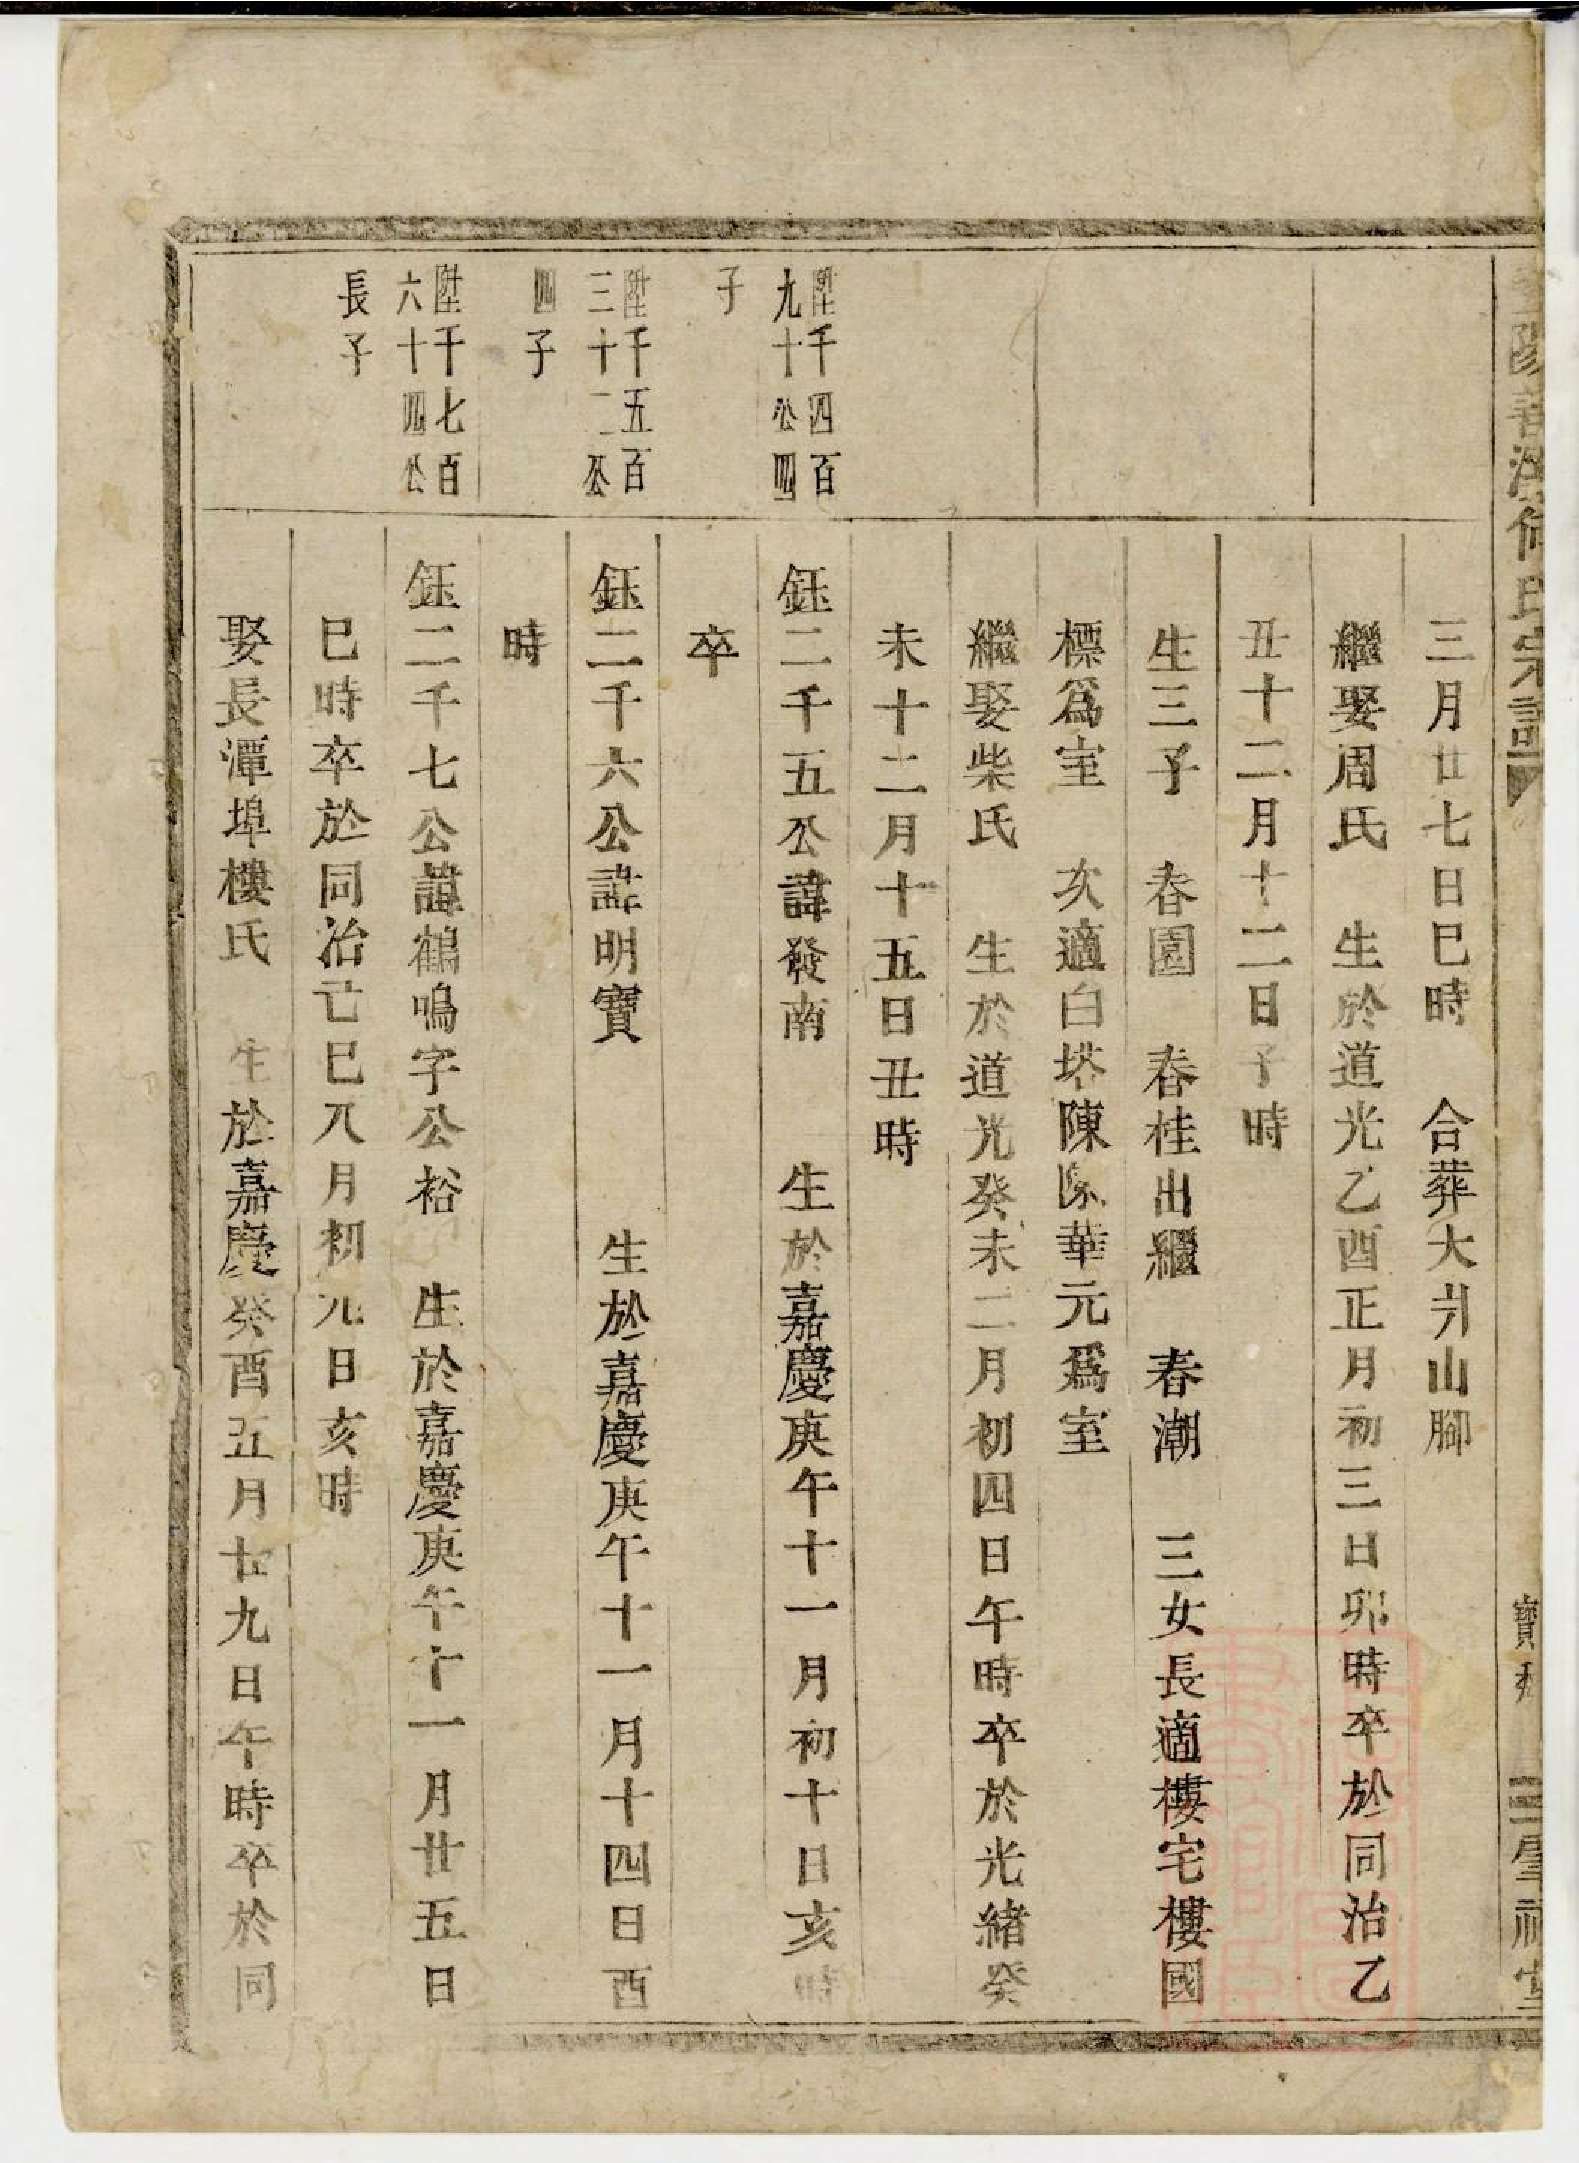 三月廿七日巳時　合葬大井山腳
繼娶周氏　生於道光乙酉正月初三日卯時卒於同治乙
丑十二月十二日子時
生三子　春園　春桂出繼　春潮　三女長適樓宅樓國
標爲室　次適白塔陳陳華元爲室
繼娶柴氏　生於道光癸未二月初四日午時卒於光緒癸
未十二月十五日丑時
陞千四百
九十公四
子
鈺二千五公諱發南　生於嘉慶庚午十一月初十日亥時
卒
陞千五百
三十二公
四子
鈺二千六公諱明寶　生於嘉慶庚午十一月十四日酉
時
陞千七百
六十四公
長子
鈺二千七公諱鶴鳴字公裕　生於嘉慶庚午十一月廿五日
巳時卒於同治己巳八月初九日亥時
娶長潭埠樓氏　生於嘉慶癸酉五月廿九日午時卒於同